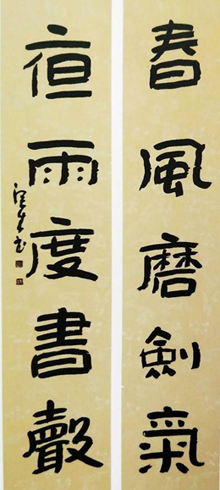 春風磨劍氣
夜雨度書聲